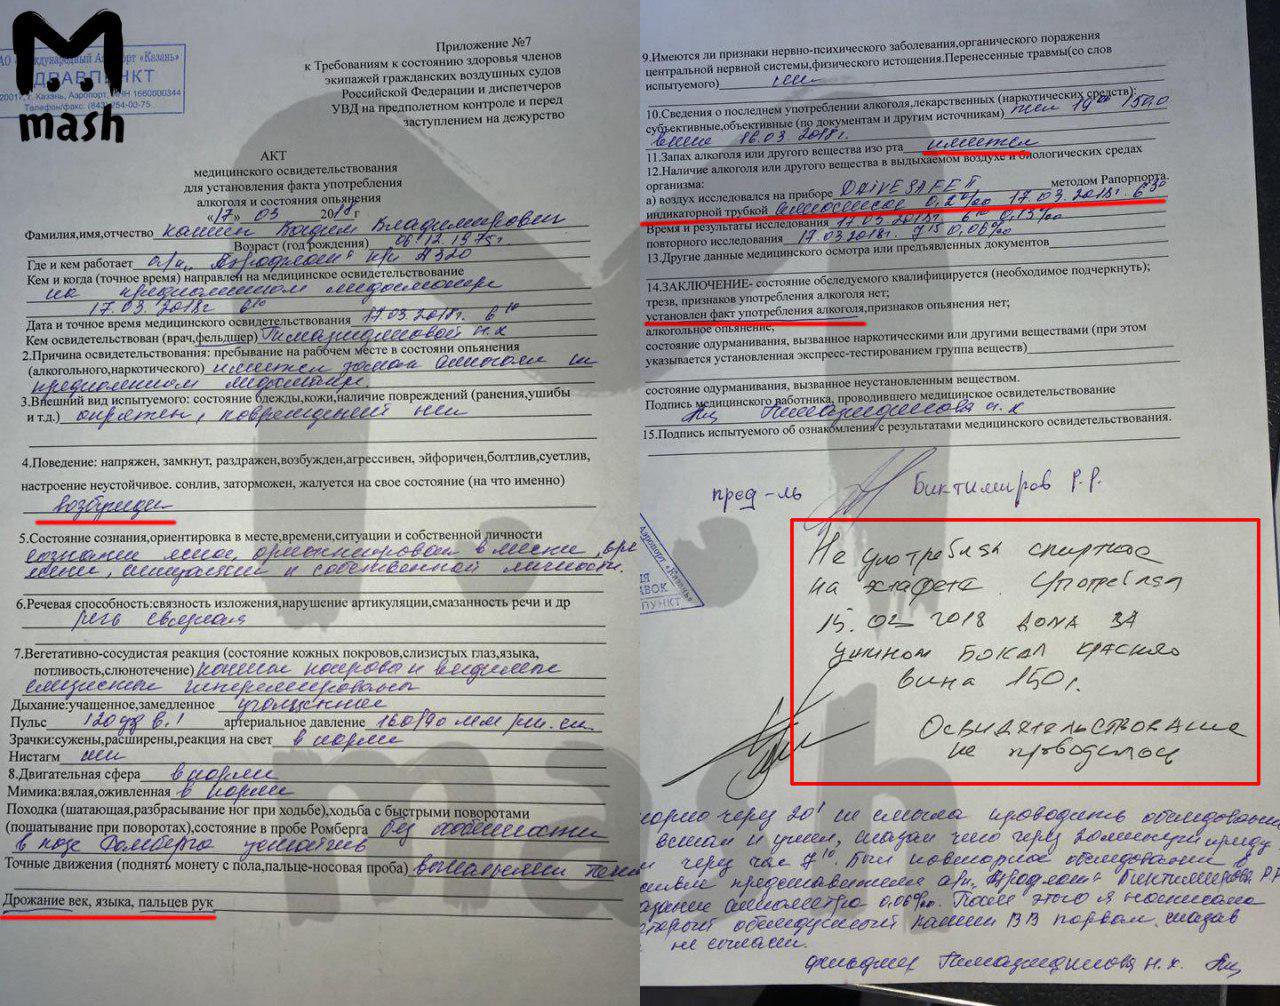 mash
АО «Международный Аэропорт «Казань»
ЗДРАВПУНКТ
420017, г. Казань, Аэропорт, ИНН 1660000344
Телефон/факс: (843) 254-00-75
Приложение №7
к Требованиям к состоянию здоровья членов
экипажей гражданских воздушных судов
Российской Федерации и диспетчеров
УВД на предполетном контроле и перед
заступлением на дежурство
АКТ
медицинского освидетельствования
для установления факта употребления
алкоголя и состояния опьянения
«17» 03 2018 г
Фамилия,имя,отчество Кашин Вадим Владимирович
Возраст (год рождения) 06.12.1975г.
Где и кем работает а/к „Аэрофлот" КВС А320
Кем и когда (точное время) направлен на медицинское освидетельствование
на предполетном медосмотре
17.03.2018г 6 10
Дата и точное время медицинского освидетельствования 17.03.2018г. 6 10
Кем освидетельствован (врач,фельдшер) Гимазитдиновой Н.Х
2.Причина освидетельствования: пребывание на рабочем месте в состоянии опьянения
(алкогольного,наркотического) имеется запах алкоголя на
предполетном медосмотре.
3.Внешний вид испытуемого: состояние одежды,кожи,наличие повреждений (ранения,ушибы
и т.д.) опрятен, повреждений нет
4.Поведение: напряжен, замкнут, раздражен,возбужден,агрессивен, эйфоричен,болтлив,суетлив,
настроение неустойчивое. сонлив, заторможен, жалуется на свое состояние (на что именно)
возбужден
5.Состояние сознания,ориентировка в месте,времени,ситуации и собственной личности
сознание ясное, ориентирован в месте, вре
мени, ситуации и собственной личности.
6.Речевая способность:связность изложения,нарушение артикуляции,смазанность речи и др
речь связная
7.Вегетативно-сосудистая реакция (состояние кожных покровов,слизистых глаз,языка,
потливость,слюнотечение) кожные покровы и видимые
слизистые гиперемированы
Дыхание:учащенное,замедленное учащенное
Пульс 120 уд в 1' артериальное давление 160/90 мм рт.ст.
Зрачки:сужены,расширены,реакция на свет в норме
Нистагм нет
8.Двигательная сфера в норме
Мимика:вялая,оживленная в норме
Походка (шатающая,разбрасывание ног при ходьбе),ходьба с быстрыми поворотами
(пошатывание при поворотах),состояние в пробе Ромберга без особенностей
в позе Ромберга устойчив
Точные движения (поднять монету с пола,пальце-носовая проба) выполняет
Дрожание век, языка, пальцев рук
9.Имеются ли признаки нервно-психического заболевания,органического поражения
центральной нервной системы,физического истощения.Перенесенные травмы(со слов
испытуемого) нет
10.Сведения о последнем употреблении алкоголя,лекарственных (наркотических средств):
субъективные,объективные (по документам и другим источникам) 19 00 150,0
вина 16.03 2018г.
11.Запах алкоголя или другого вещества изо рта имеется
12.Наличие алкоголя или другого вещества в выдыхаемом воздухе и биологических средах
организма:
а) воздух исследовался на приборе DRIVESAFE II методом Рапорпорта.
индикаторной трубкой 0,2‰ 17.03.2018г. 6 30
Время и результаты исследования 17.03.2018г. 0,13‰
повторного исследования 17.03.2018г. 7 15 0,06‰
13.Другие данные медицинского осмотра или предъявленных документов
14.ЗАКЛЮЧЕНИЕ- состояние обследуемого квалифицируется (необходимое подчеркнуть);
трезв, признаков употребления алкоголя нет;
установлен факт употребления алкоголя,признаков опьянения нет;
алкогольное опьянение;
состояние одурманивания, вызванное наркотическими или другими веществами (при этом
указывается установленная экспресс-тестированием группа веществ)
состояние одурманивания, вызванное неустановленным веществом.
Подпись медицинского работника, проводившего медицинское освидетельствование
Гимазитдинова Н.Х
15.Подпись испытуемого об ознакомления с результатами медицинского освидетельствования.
пред-ль Биктимиров Р.Р.
Аэропорт «Казань»
Не употреблял спиртное
на эстафете. Употреблял
15.03 2018 дома за
ужином бокал красного
вина 150г.
Освидетельствование
не проводилось
через 20' не смогла проводить обследование
встал и ушел, сказал что через 20 минут приду
через час 7 10. Был повторное обследование в
представителя а/к „Аэрофлот" Биктимирова Р.Р
алкометра 0,06‰. После этого я написала
обследуемый Кашин В.В порвал, сказав
не согласен.
фельдшер Гимазитдинова Н.Х.
mash